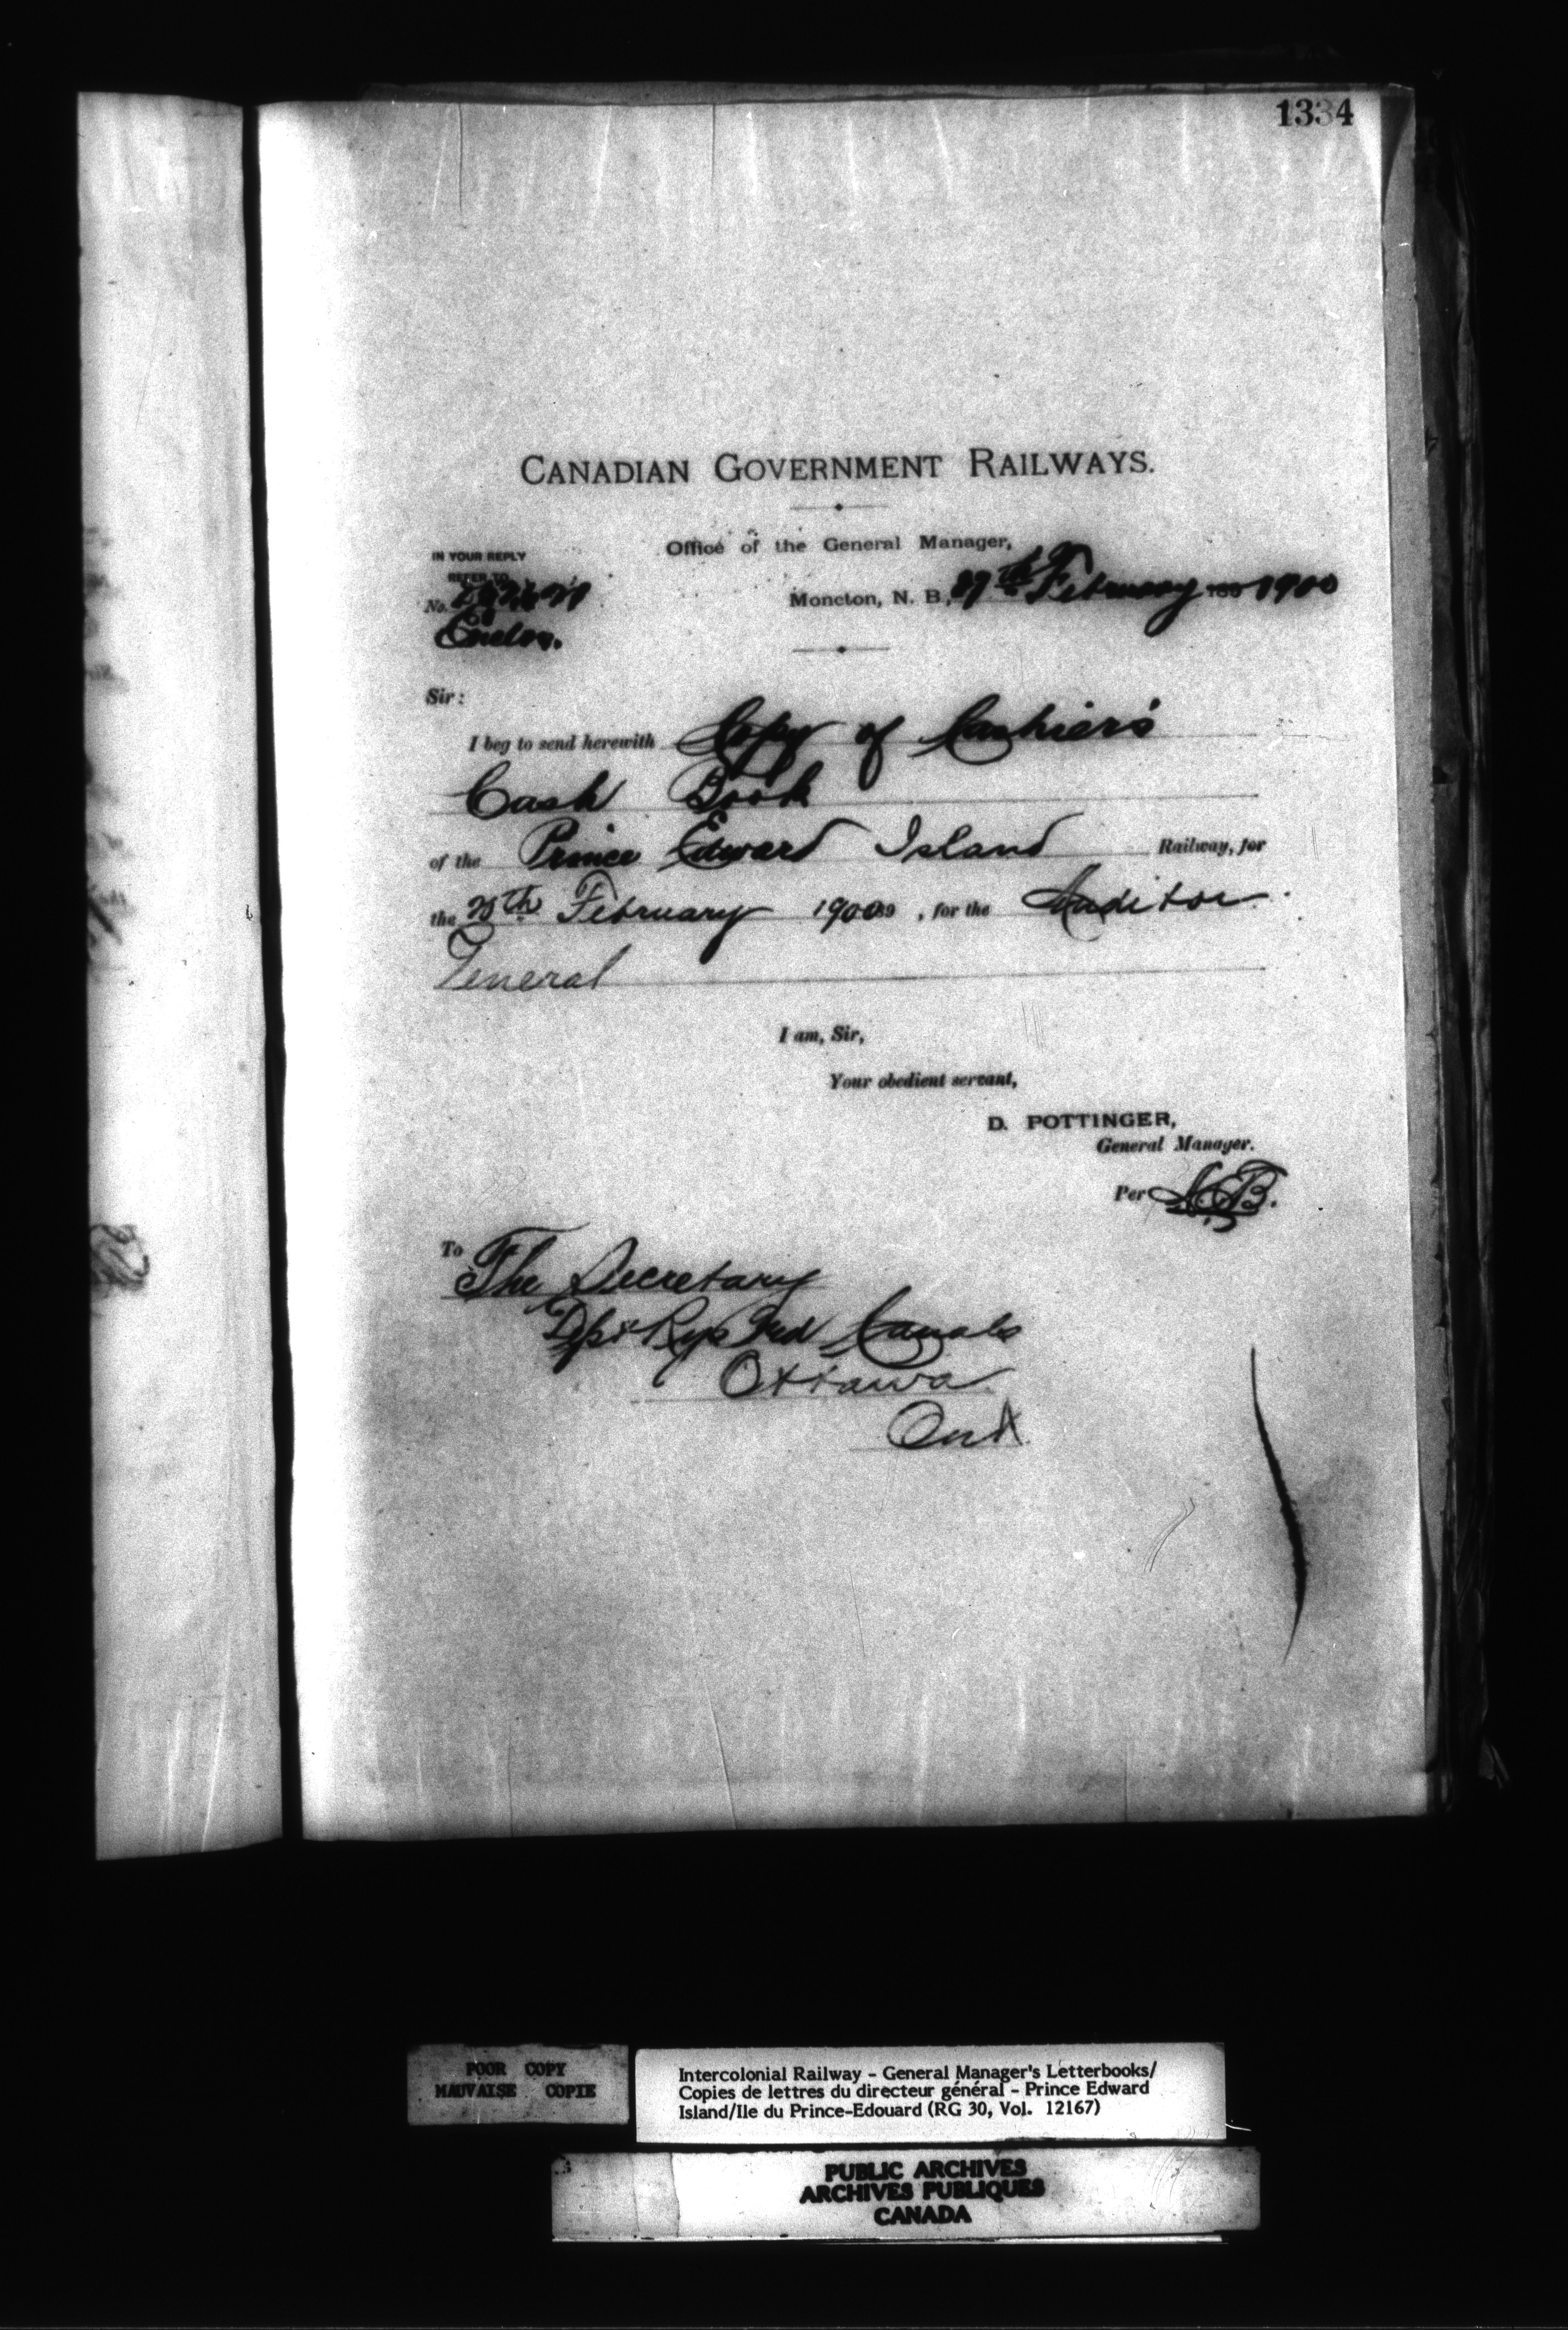 1334
CANADIAN GOVERNMENT RAILWAYS.
Office of the General Manager,
IN YOUR REPLY
REFER TO
No.
Enclos.
Moncton, N. B., 27th February 1900
Sir:
I beg to send herewith Copy of Cashier's
Cash Book
of the Prince Edward Island Railway, for
the February 1900 , for the Auditor
General
I am, Sir,
Your obedient servant,
D. POTTINGER,
General Manager.
Per
To The Secretary
Dpt Rys and Canals
Ottawa
Ont.
POOR COPY
MAUVAISE COPIE
Intercolonial Railway - General Manager's Letterbooks/
Copies de lettres du directeur général - Prince Edward
Island/Ile du Prince-Edouard (RG 30, Vol. 12167)
PUBLIC ARCHIVES
ARCHIVES PUBLIQUES
CANADA